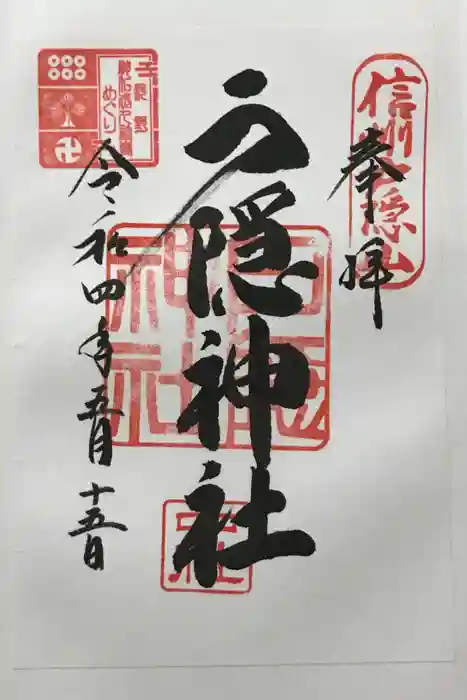 奉拝
信州戸隠山
戸隠神社
戸隠神社
令和四年五月十五日
めぐり
卍